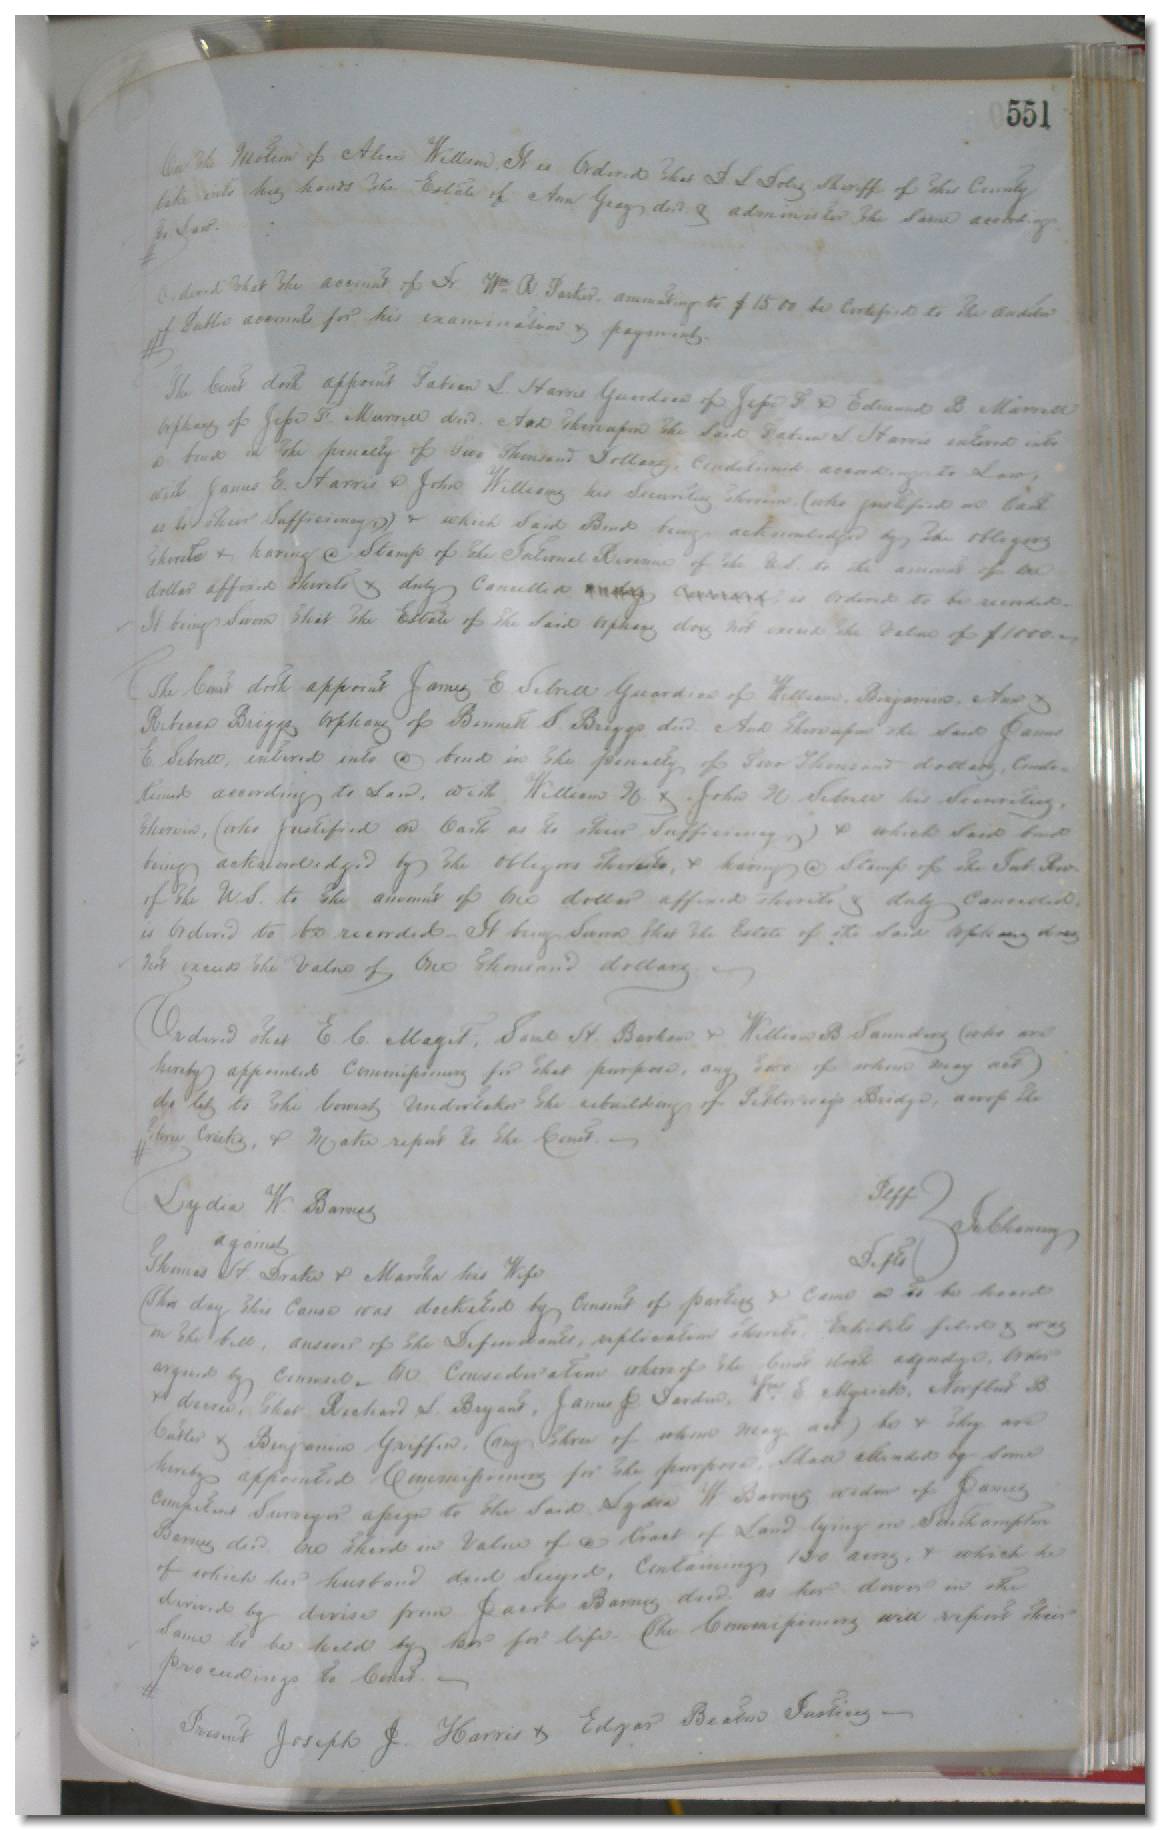 551
On the Motion of Alexr William. It is Ordered that S L Doles Sheriff of this County
take into his hands the Estate of Ann Gray decd. & administer the same according
to Law.
Ordered that the account of Dr. Wm R Parker. amounting to $15.00 be Certified to the auditor
of Public accounts for his examination & payment.
The Court doth appoint Fabian L. Harris Guardian of Jesse F & Edmund B. Murrell
orphans of Jesse F. Murrell decd. And thereupon the said Fabian L Harris entered into
a bond in the penalty of Two Thousand Dollars, Conditioned according to Law,
with James E. Harris & John Williams his Securities therein (who justified on Oath
as to their Sufficiency,) & which said Bond being acknowledged by the obligors
thereto & having a Stamp of the Internal Revenue of the U.S. to the amount of one
dollar affixed thereto & duly Cancelled is ordered to be recorded.
It being Sworn that the Estate of the said orphans does not exceed the Value of $1000.
The Court doth appoint James E Sebrell Guardian of William, Benjamin, Ann &
Rebecca Briggs orphans of Bennett S. Briggs decd. And thereupon the said James
E. Sebrell, entered into a bond in the penalty of Two Thousand dollars, Condi-
tioned according to Law, with William N. & John N. Sebrell his Securities,
therein, (who justified on Oath as to their Sufficiency,) & which said bond
being acknowledged by the obligors thereto, & having a Stamp of the Int. Rev.
of the U.S. to the amount of One dollar affixed thereto & duly Cancelled,
is Ordered to be recorded - It being Sworn that the Estate of the said orphans does
not exceed the Value of One thousand dollars
Ordered that E. C. Maget, Saml H. Barham & William B Saunders (who are
hereby appointed Commissioners for that purpose, any two of whom may act)
do let to the lowest Undertaker the rebuilding of Bridge, across the
Three Creeks, & Make report to the Court.
Lydia W Barnes Plff
against In Chancery
Thomas H. Drake & Martha his Wife Defts
This day this Cause was docketed by Consent of parties & came on to be heard
on the bill, answer of the Defendants, replication thereto, Exhibits filed & was
argued by Counsel. On Consideration whereof the Court doth adjudge, order
& decree, that Richard L. Bryant, James J Darden, Wm E. Myrick, Norflut B
Cutler & Benjamin Griffin, (any three of whom may act) be & they are
hereby appointed Commissioners for the purpose, Shall attended by some
Competent Surveyor assign to the said Lydia W Barnes widow of James
Barnes decd. One third in Value of a tract of Land lying in Southampton
of which her husband died Seized, Containing 150 acres, & which he
derived by devise from Jacob Barnes decd. as her dower in the
Same to be held by her for life. The Commissioners will report their
proceedings to Court.
Present Joseph J. Harris & Edgar Beaton Justices